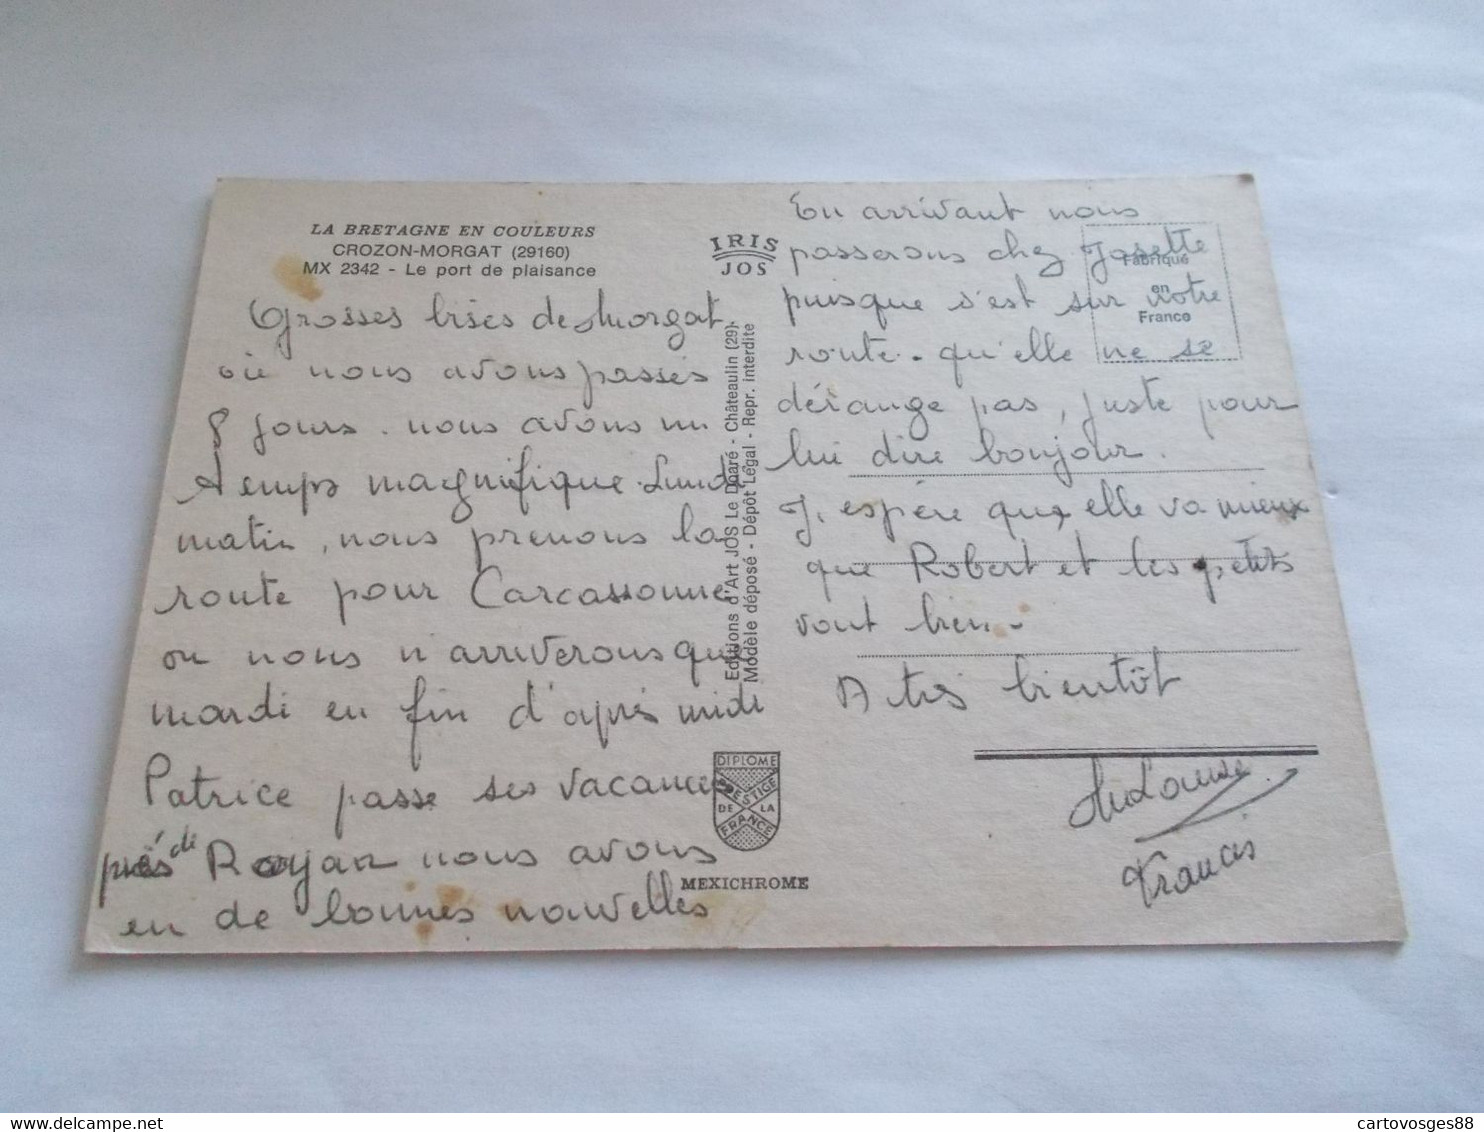 LA BRETAGNE EN COULEURS
CROZON-MORGAT (29160)
MX 2342 - Le port de plaisance
Grosses bises de Morgat
où nous avons passés
8 jours. nous avons un
temps magnifique. Lundi
matin, nous prenons la
route pour Carcassonne
ou nous n'arriverons que
mardi en fin d'après midi
Patrice passe ses vacances
près de Royan nous avons
en de bonnes nouvelles
IRIS
JOS
Editions d'Art JOS Le Doaré - Châteaulin (29).
Modèle déposé - Dépôt Légal - Repr. interdite
DIPLOME
PRESTIGE
DE LA
FRANCE
MEXICHROME
Fabriqué
en
France
En arrivant nous
passerons chez Josette
puisque s'est sur notre
route. qu'elle ne se
dérange pas, juste pour
lui dire bonjour.
J'espère que elle va mieux
que Robert et les petits
vont bien.
A très bientôt
Louise
Francis
cartovosges88